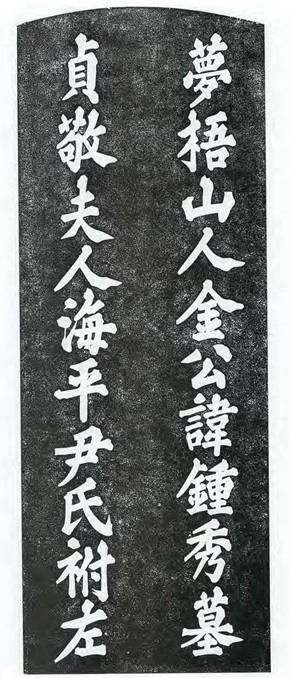 夢梧山人金公諱鍾秀墓
貞敬夫人海平尹氏祔左